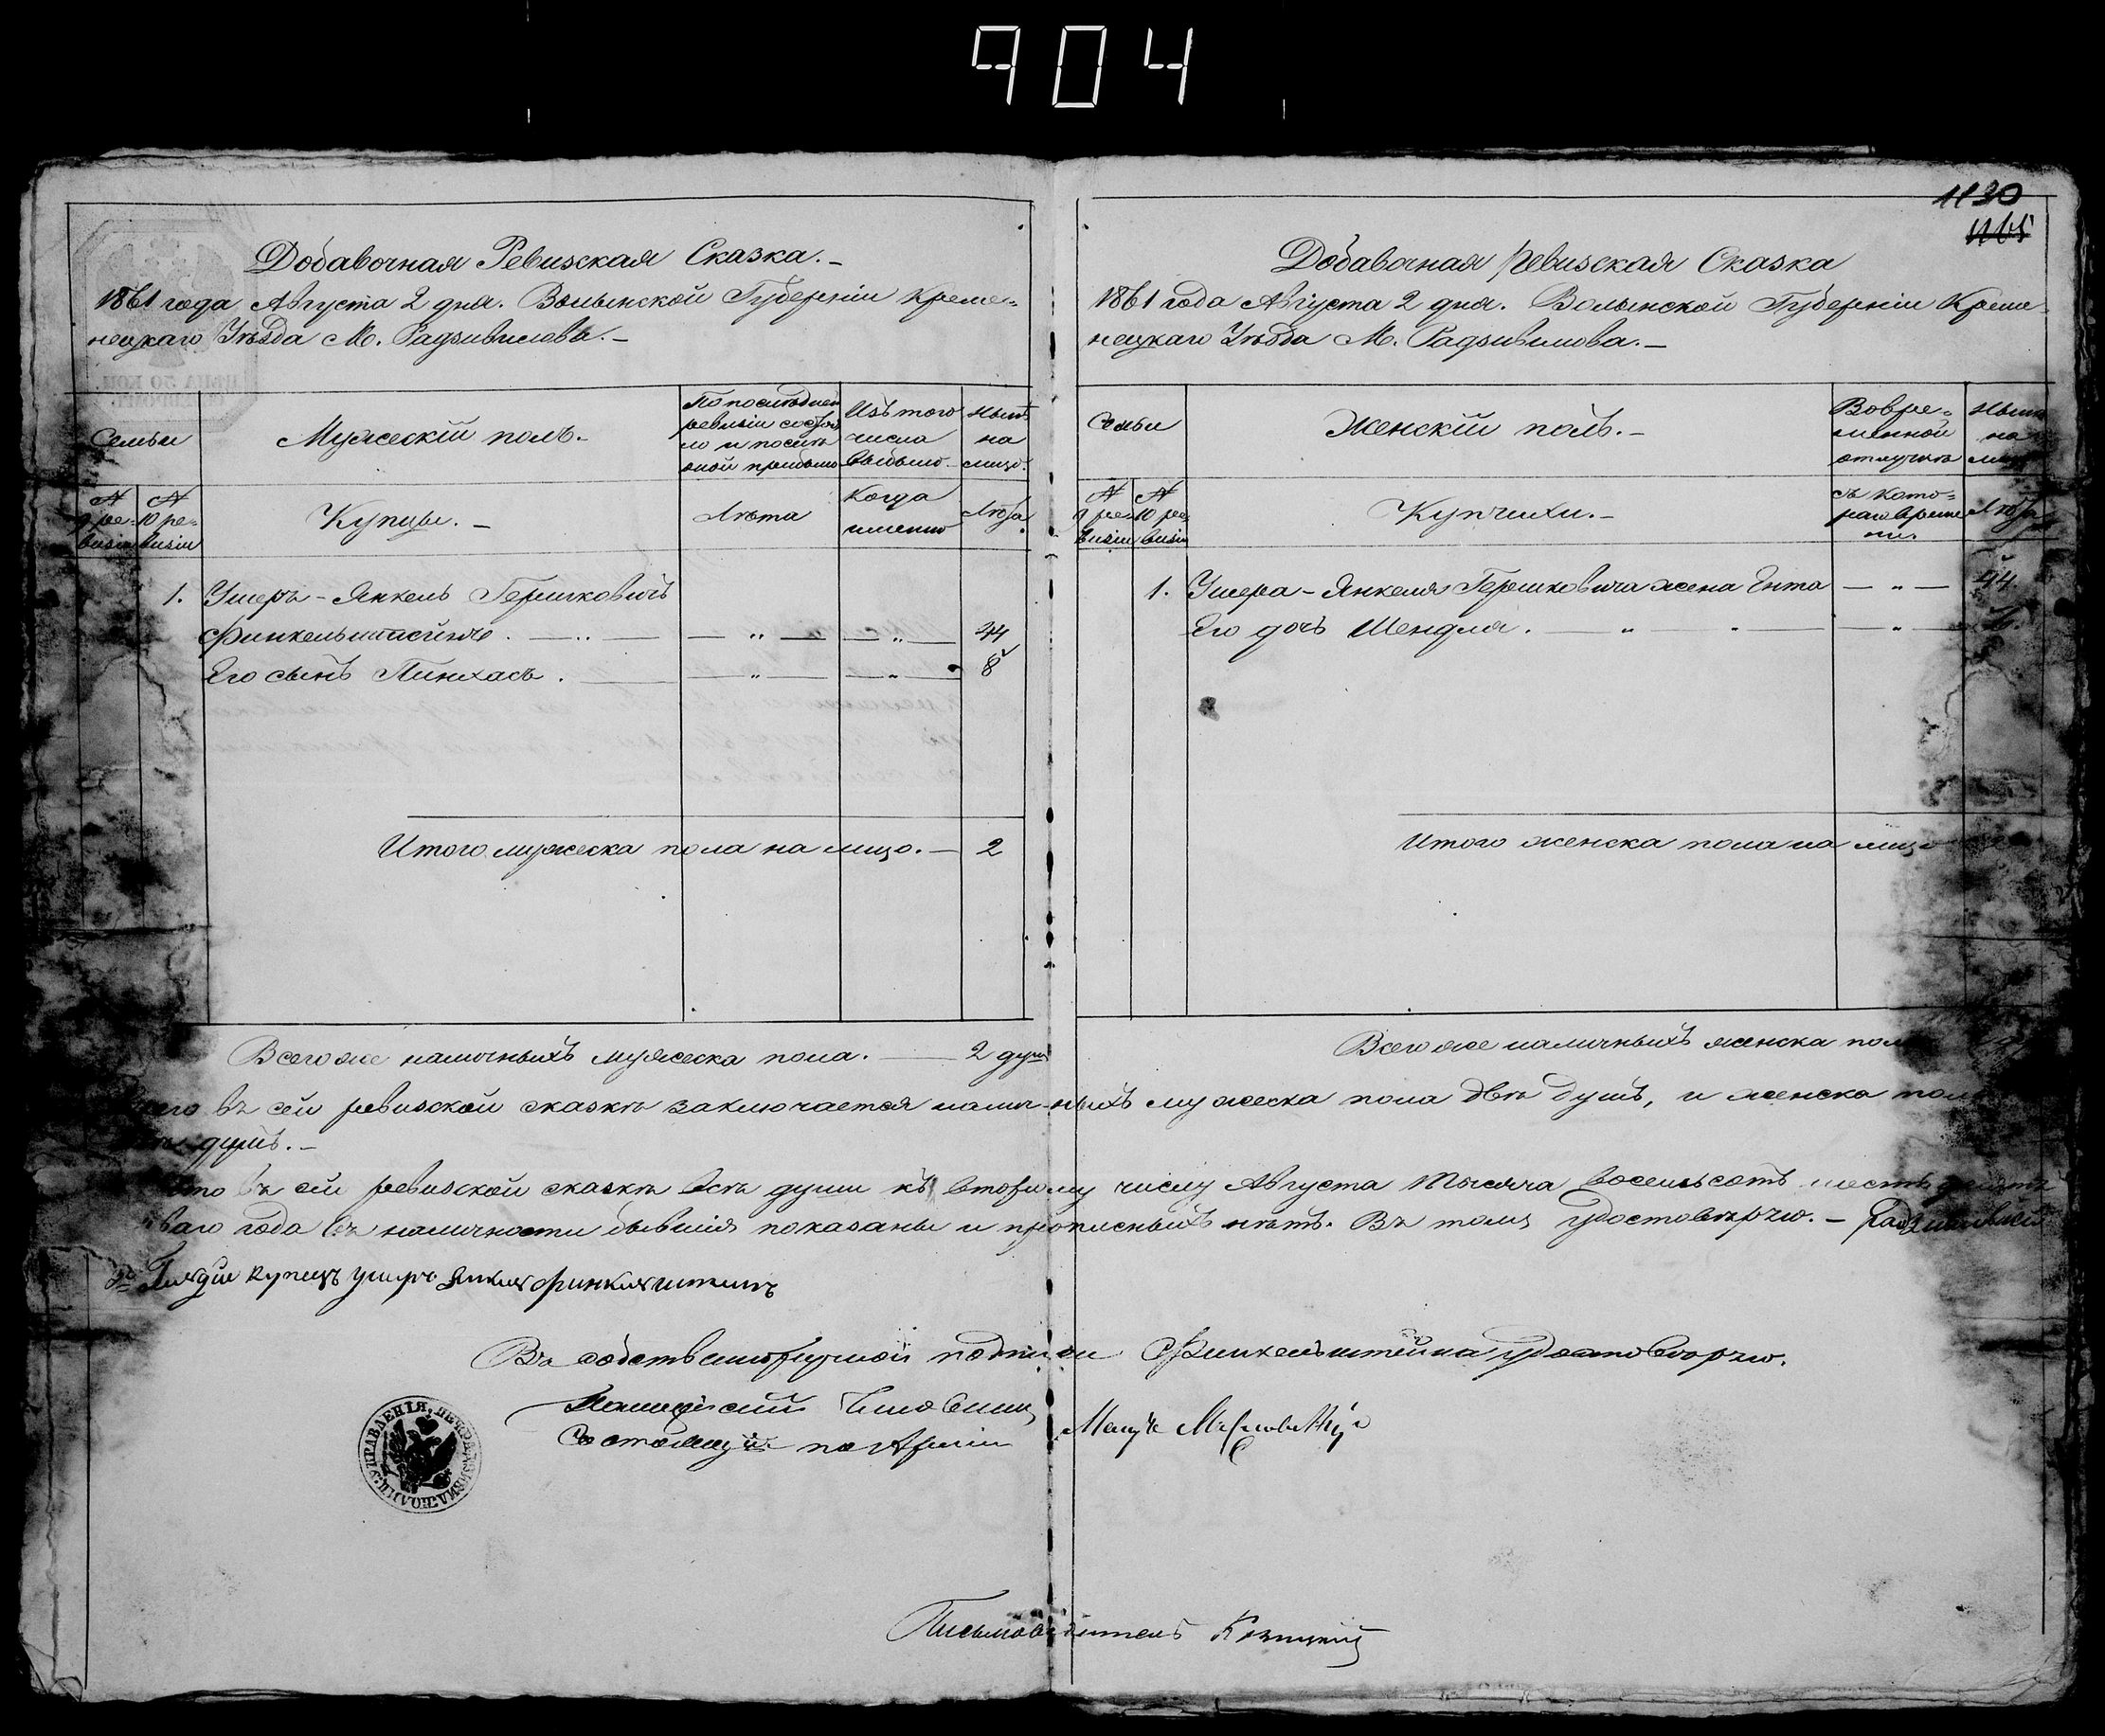 904
1130
1165
Добавочная Ревизская Сказка.
1861 года Августа 2 дня. Волынской Губерніи Креме-
нецкаго Уѣзда М. Радзивилова.
Семьи
Мужескій полъ.
По послѣдней
ревизіи состоя-
ло и послѣ
оной прибыло
Изъ того
числа
выбыло
Нынѣ
на
лицо.
№
9 ре-
визіи
№
10 ре-
визіи
Купцы.
Лѣта
Когда
именно
Лѣта
1. Ушеръ-Янкель Гершковичъ
Финкельштейнъ. — „ — — „ — — „ — 44
Его сынъ Пинхасъ. — — „ — — „ — 8
Итого мужеска пола на лицо. — 2
Всего же наличныхъ мужеска пола. — 2 душ
Добавочная Ревизская Сказка
1861 года Августа 2 дня. Волынской Губерніи Креме-
нецкаго Уѣзда М. Радзивилова.
Семьи
Женскій полъ.
Во вре-
менной
отлучкѣ
Нынѣ
на
№
9 ре-
визіи
№
10 ре-
визіи
Купчихи.
съ кото-
раго време-
ни.
Лѣта
1. Ушера-Янкеля Гершковича жена Ента — „ — 44
Его дочь Шендля. — „ „ — „ —
Итого женска пола на лицо
Всего же наличныхъ женска пола
въ сей ревизской сказкѣ заключается наличныхъ мужеска пола двѣ душъ, и женска пола
душъ.
въ сей ревизской сказкѣ всѣ души къ второму числу Августа тысяча восемьсотъ шестьдесятъ
года въ наличности бывшія показаны и прописныхъ нѣтъ. Въ томъ удостовѣряю. —
Гилдіи купецъ Ушеръ Янкел Финкелштеинъ
Въ собственноручной подписи Финкельштейна удостовѣряю.
Полицейскій Чиновникъ
Состоящій по Арміи
УПРАВЛЕНІЯ
Письмоводитель